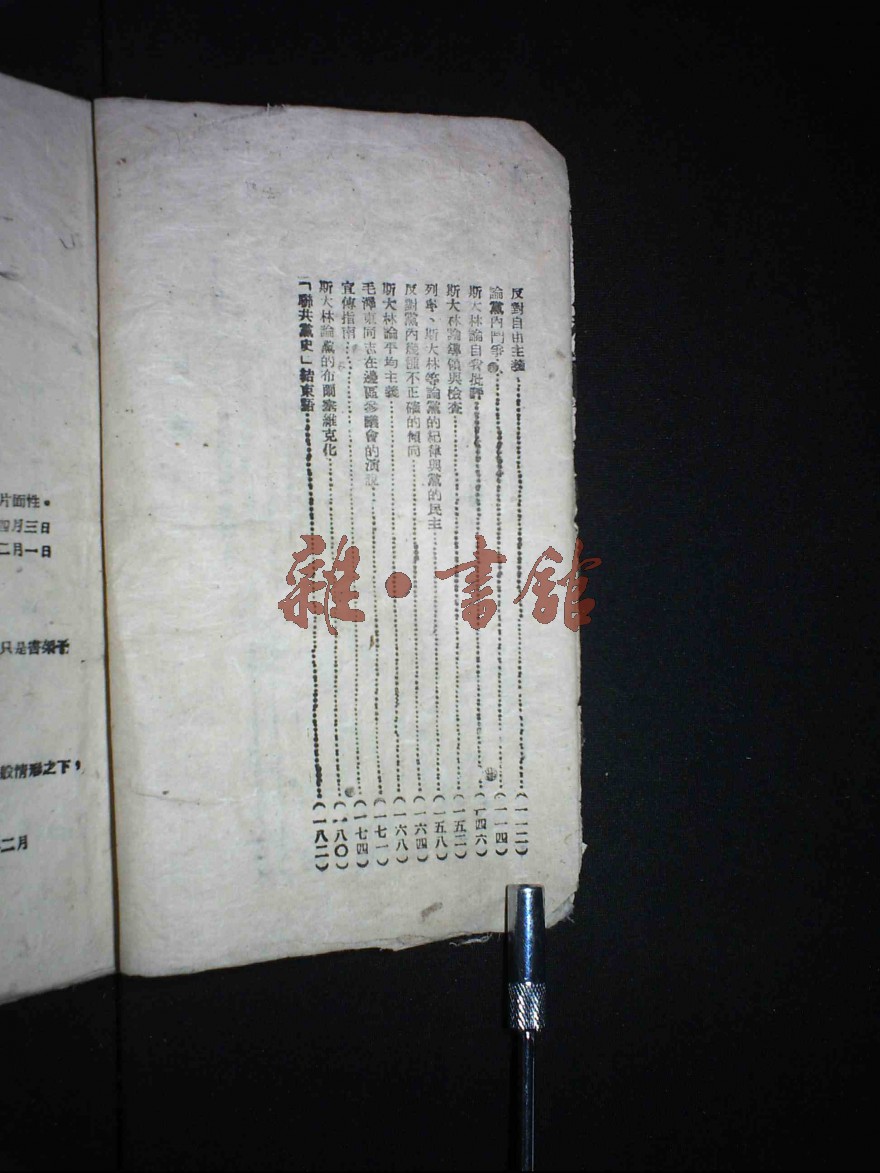 反對自由主義（一一二）
論黨內鬥爭（一一四）
斯大林論自我批評（一四六）
斯大林論領導與檢查（一五二）
列寧、斯大林等論黨的紀律與黨的民主（一五八）
反對黨內幾種不正確的傾向（一六四）
斯大林論平均主義（一六八）
毛澤東同志在邊區參議會的演說（一七一）
宣傳指南（一七四）
斯大林論黨的布爾塞維克化（一八〇）
「聯共黨史」結束語（一八二）
片面性。
四月三日
二月一日
只是書架子
般情形之下，
二月
雜·書館